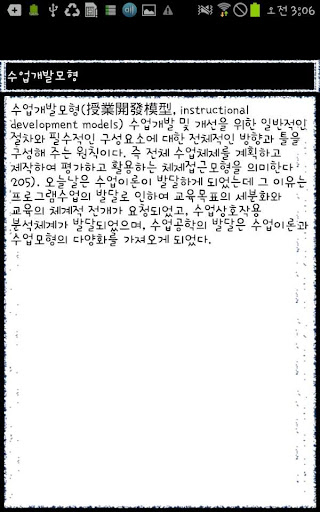 오전 3:06
수업개발모형
수업개발모형(授業開發模型, instructional
development models) 수업개발 및 개선을 위한 일반적인
절차와 필수적인 구성요소에 대한 전체적인 방향과 틀을
구성해 주는 원칙이다. 즉 전체 수업체제를 계획하고
제작하여 평가하고 활용하는 체제접근모형을 의미한다
205). 오늘날은 수업이론이 발달하게 되었는데 그 이유는
프로그램수업의 발달로 인하여 교육목표의 세분화와
교육의 체계적 전개가 요청되었고, 수업상호작용
분석체계가 발달되었으며, 수업공학의 발달은 수업이론과
수업모형의 다양화를 가져오게 되었다.